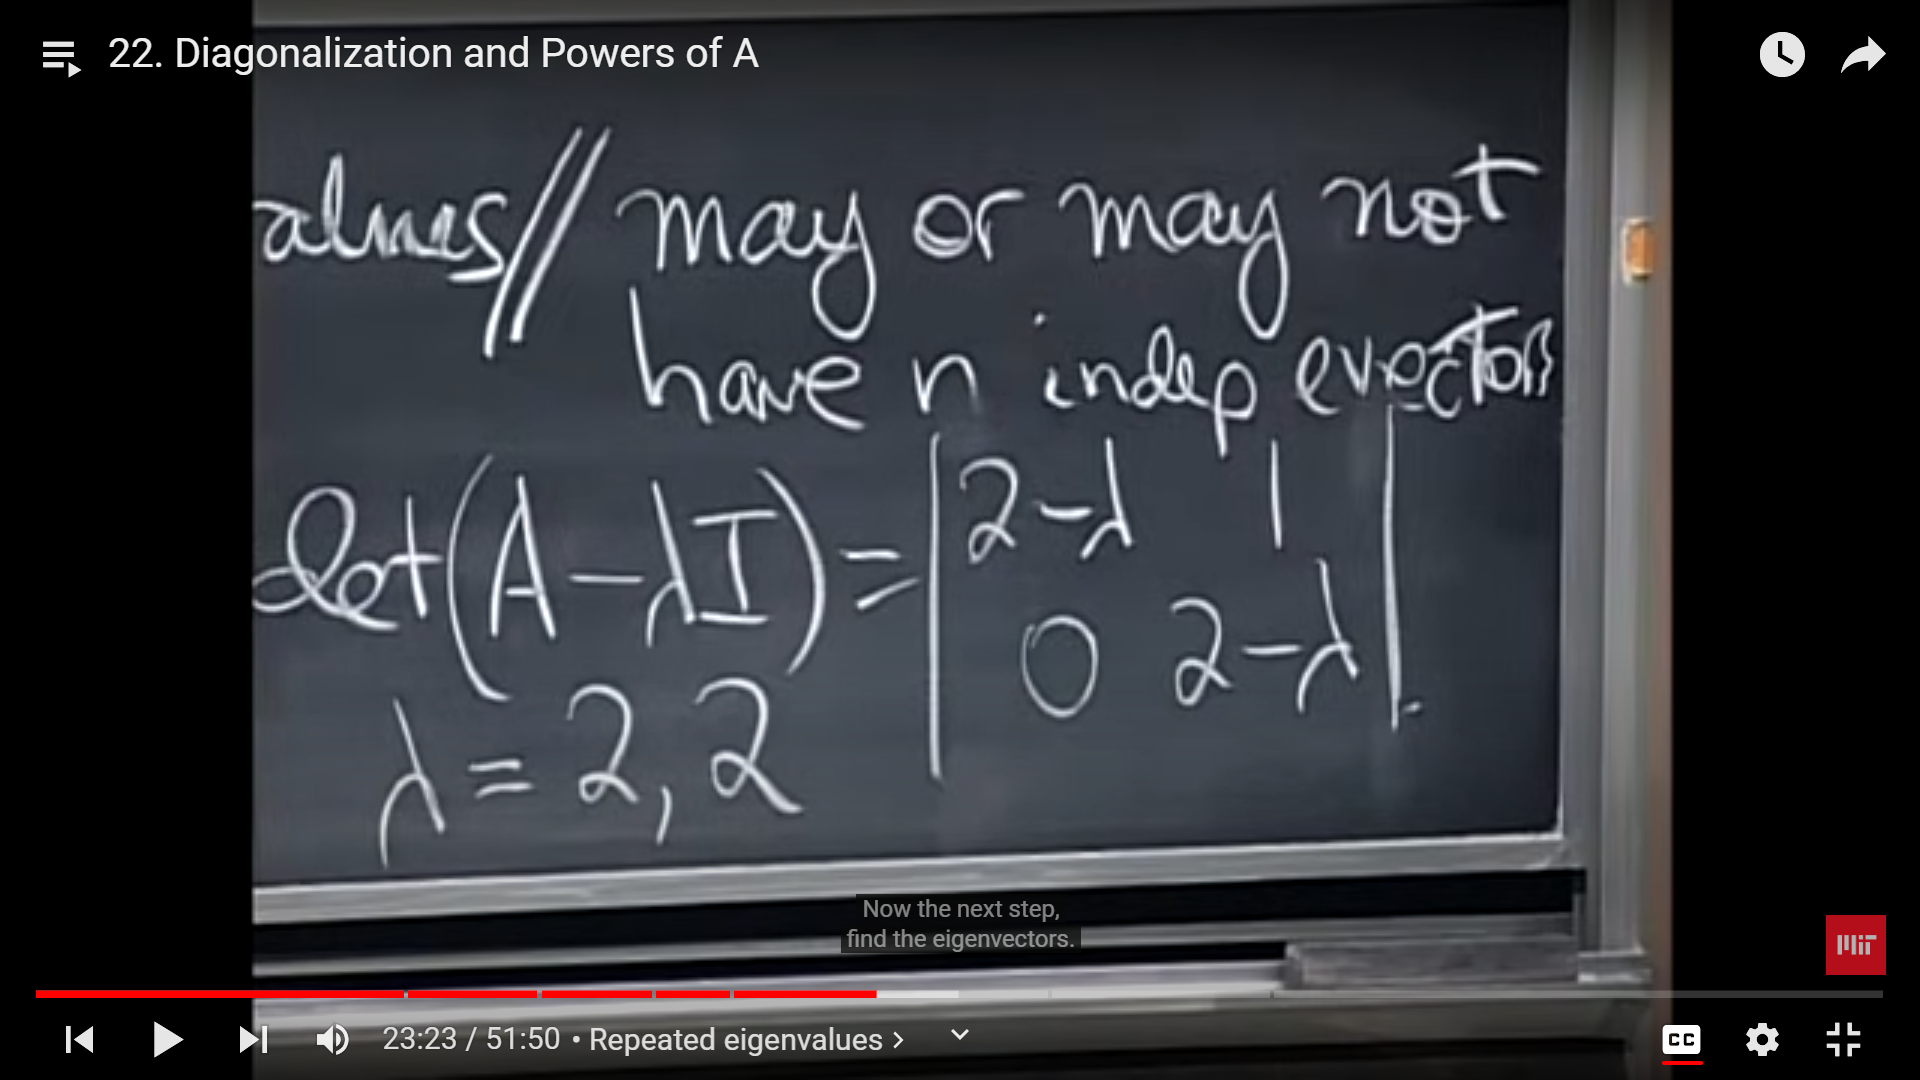 22. Diagonalization and Powers of A
alues // may or may not
have n indep evectors
det(A-λI) = |2-λ 1|
|0 2-λ|.
λ = 2, 2
Now the next step,
find the eigenvectors.
MIT
23:23 / 51:50 • Repeated eigenvalues >
CC